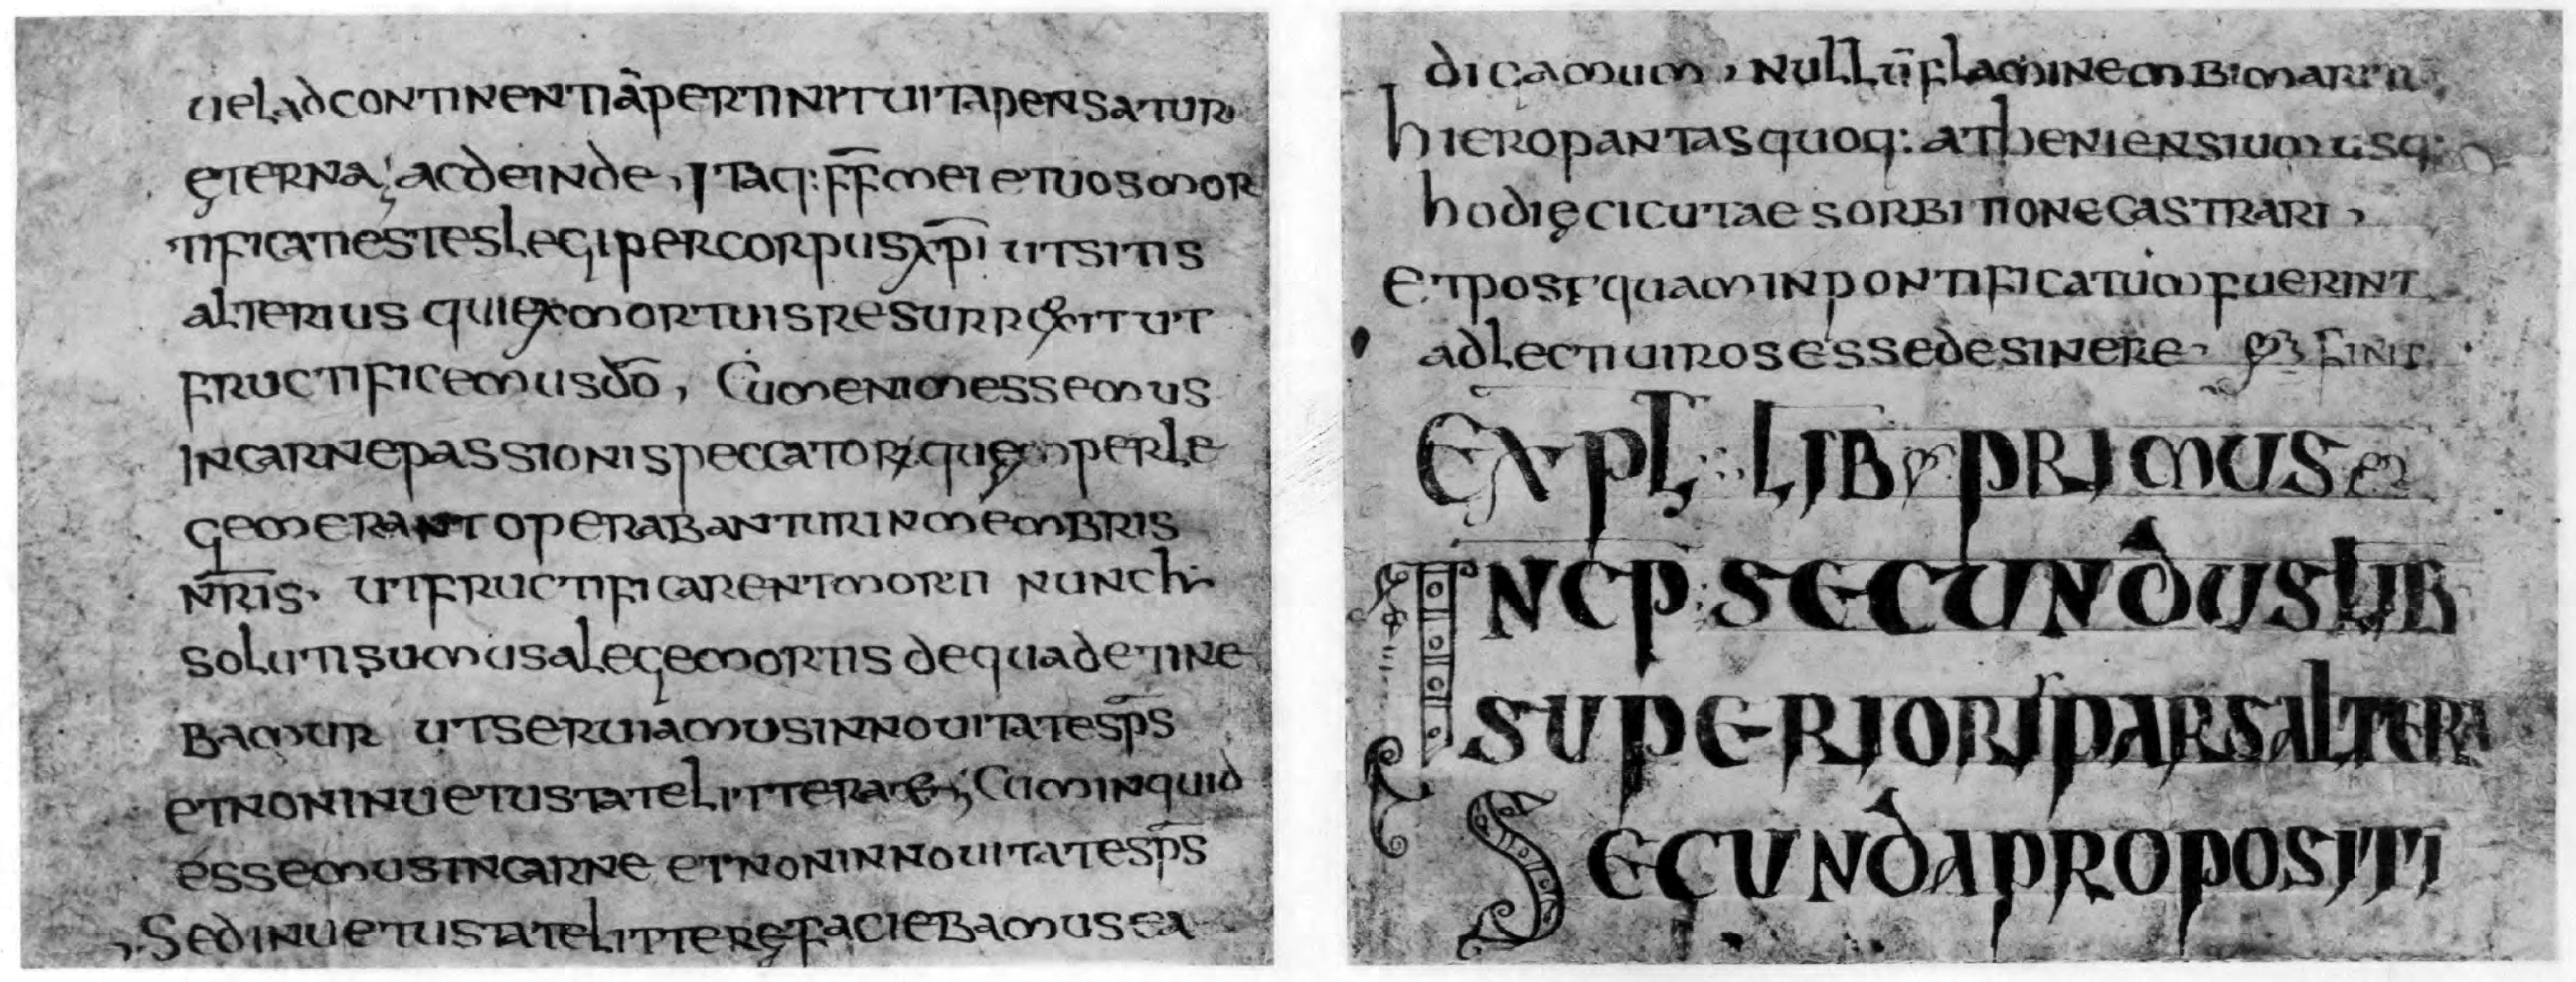 uel ad continentiā pertinit uita pensatur
ęterna; ac deinde, Itaq: f̄f̄ mei et uos mor
tificati estes legi per corpus xp̄i ut sitis
alterius qui ex mortuis resurrexit ut
fructificemus dō, Cum enim essemus
in carne passionis peccator quę per le
gem erant operabantur in membris
n̄ris. ut fructificarent morti nunc hi
soluti sumus a lege mortis de qua detine
bamur ut seruiamus in nouitate sp̄s
et non in uetustate litterae; Cum inquid
essemus in carne et non in nouitate sp̄s
, Sed in uetustate litterę faciebamus ea
dicamum, nullū flaminem bimaritū,
hieropantas quoq: atheniensium usq:
hodię cicutae sorbitione castrari,
Et postquam in pontificatum fuerint
adlecti uiros esse desinere, finit
Expl: Lib primus
Incp: secundus Lib
superiori pars altera
Secunda propositi